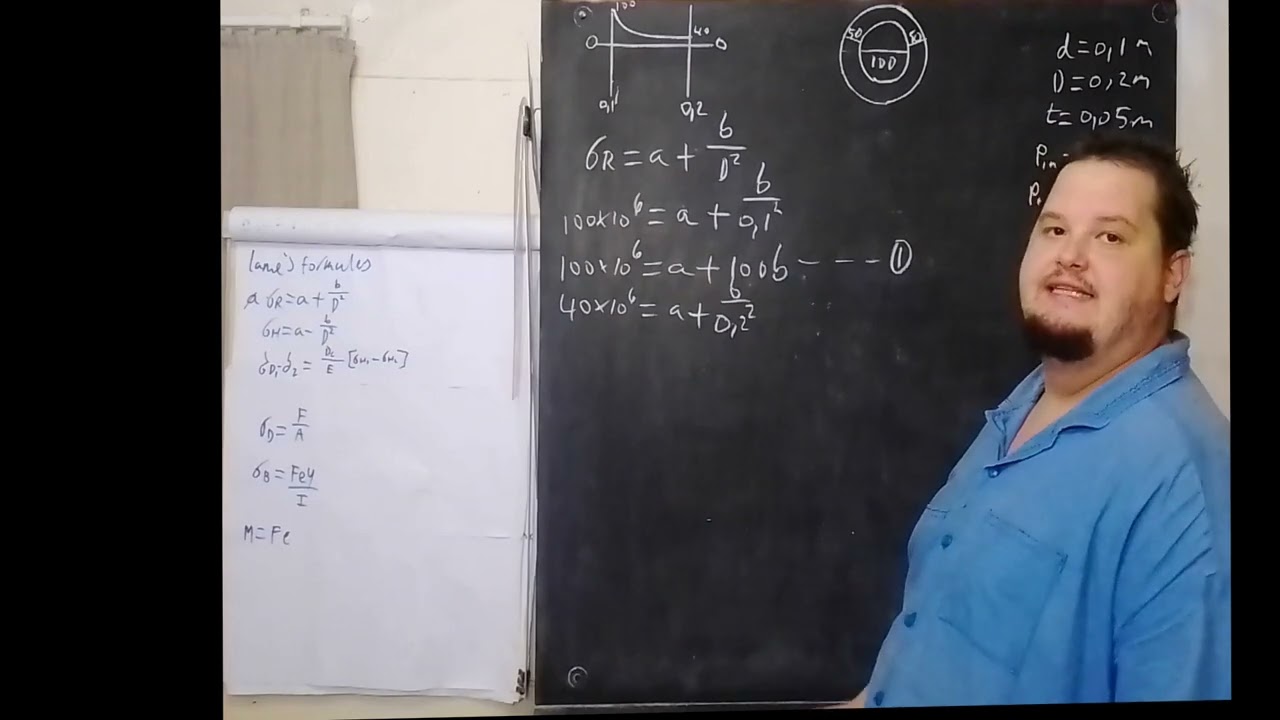 Lame's formules
σR = a + b/D²
σH = a - b/D²
δD1-δ2 = Dc/E [σH1 - σH2]
σD = F/A
σB = Fey/I
M = Fe
100
40
O
O
0,1
0,2
50
50
100
d = 0,1m
D = 0,2m
t = 0,05m
Pin =
P
σR = a + b/D²
100×10⁶ = a + b/0,1²
100×10⁶ = a + 100b - - - - ①
40×10⁶ = a + b/0,2²